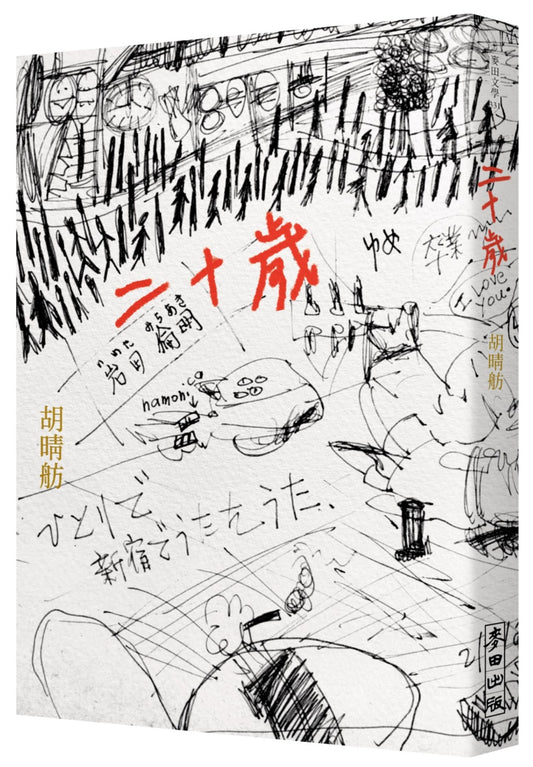 二十歲
ゆめ
いわた
岩田
明
namoni
胡晴舫
ひとりで
新宿でうたえうた、
麥田文學
二十歲
卒業
I LOVE
YOU.
胡晴舫
麥田出版